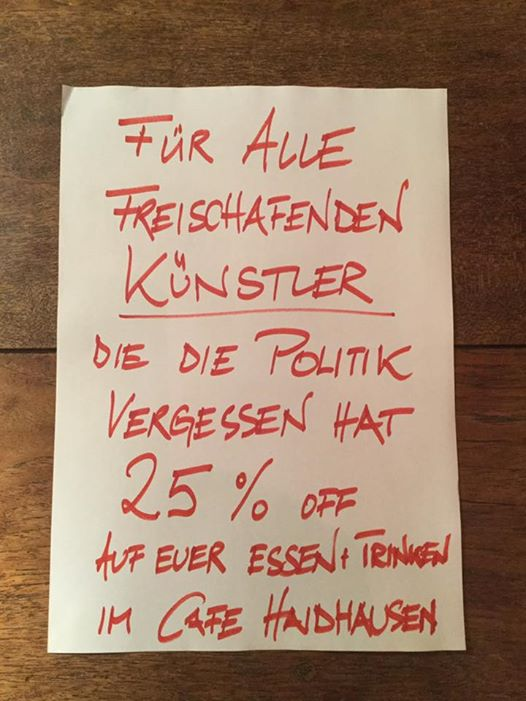 FÜR ALLE
FREISCHAFENDEN
KÜNSTLER
DIE DIE POLITIK
VERGESSEN HAT
25% OFF
AUF EUER ESSEN + TRINKEN
IM CAFE HAIDHAUSEN